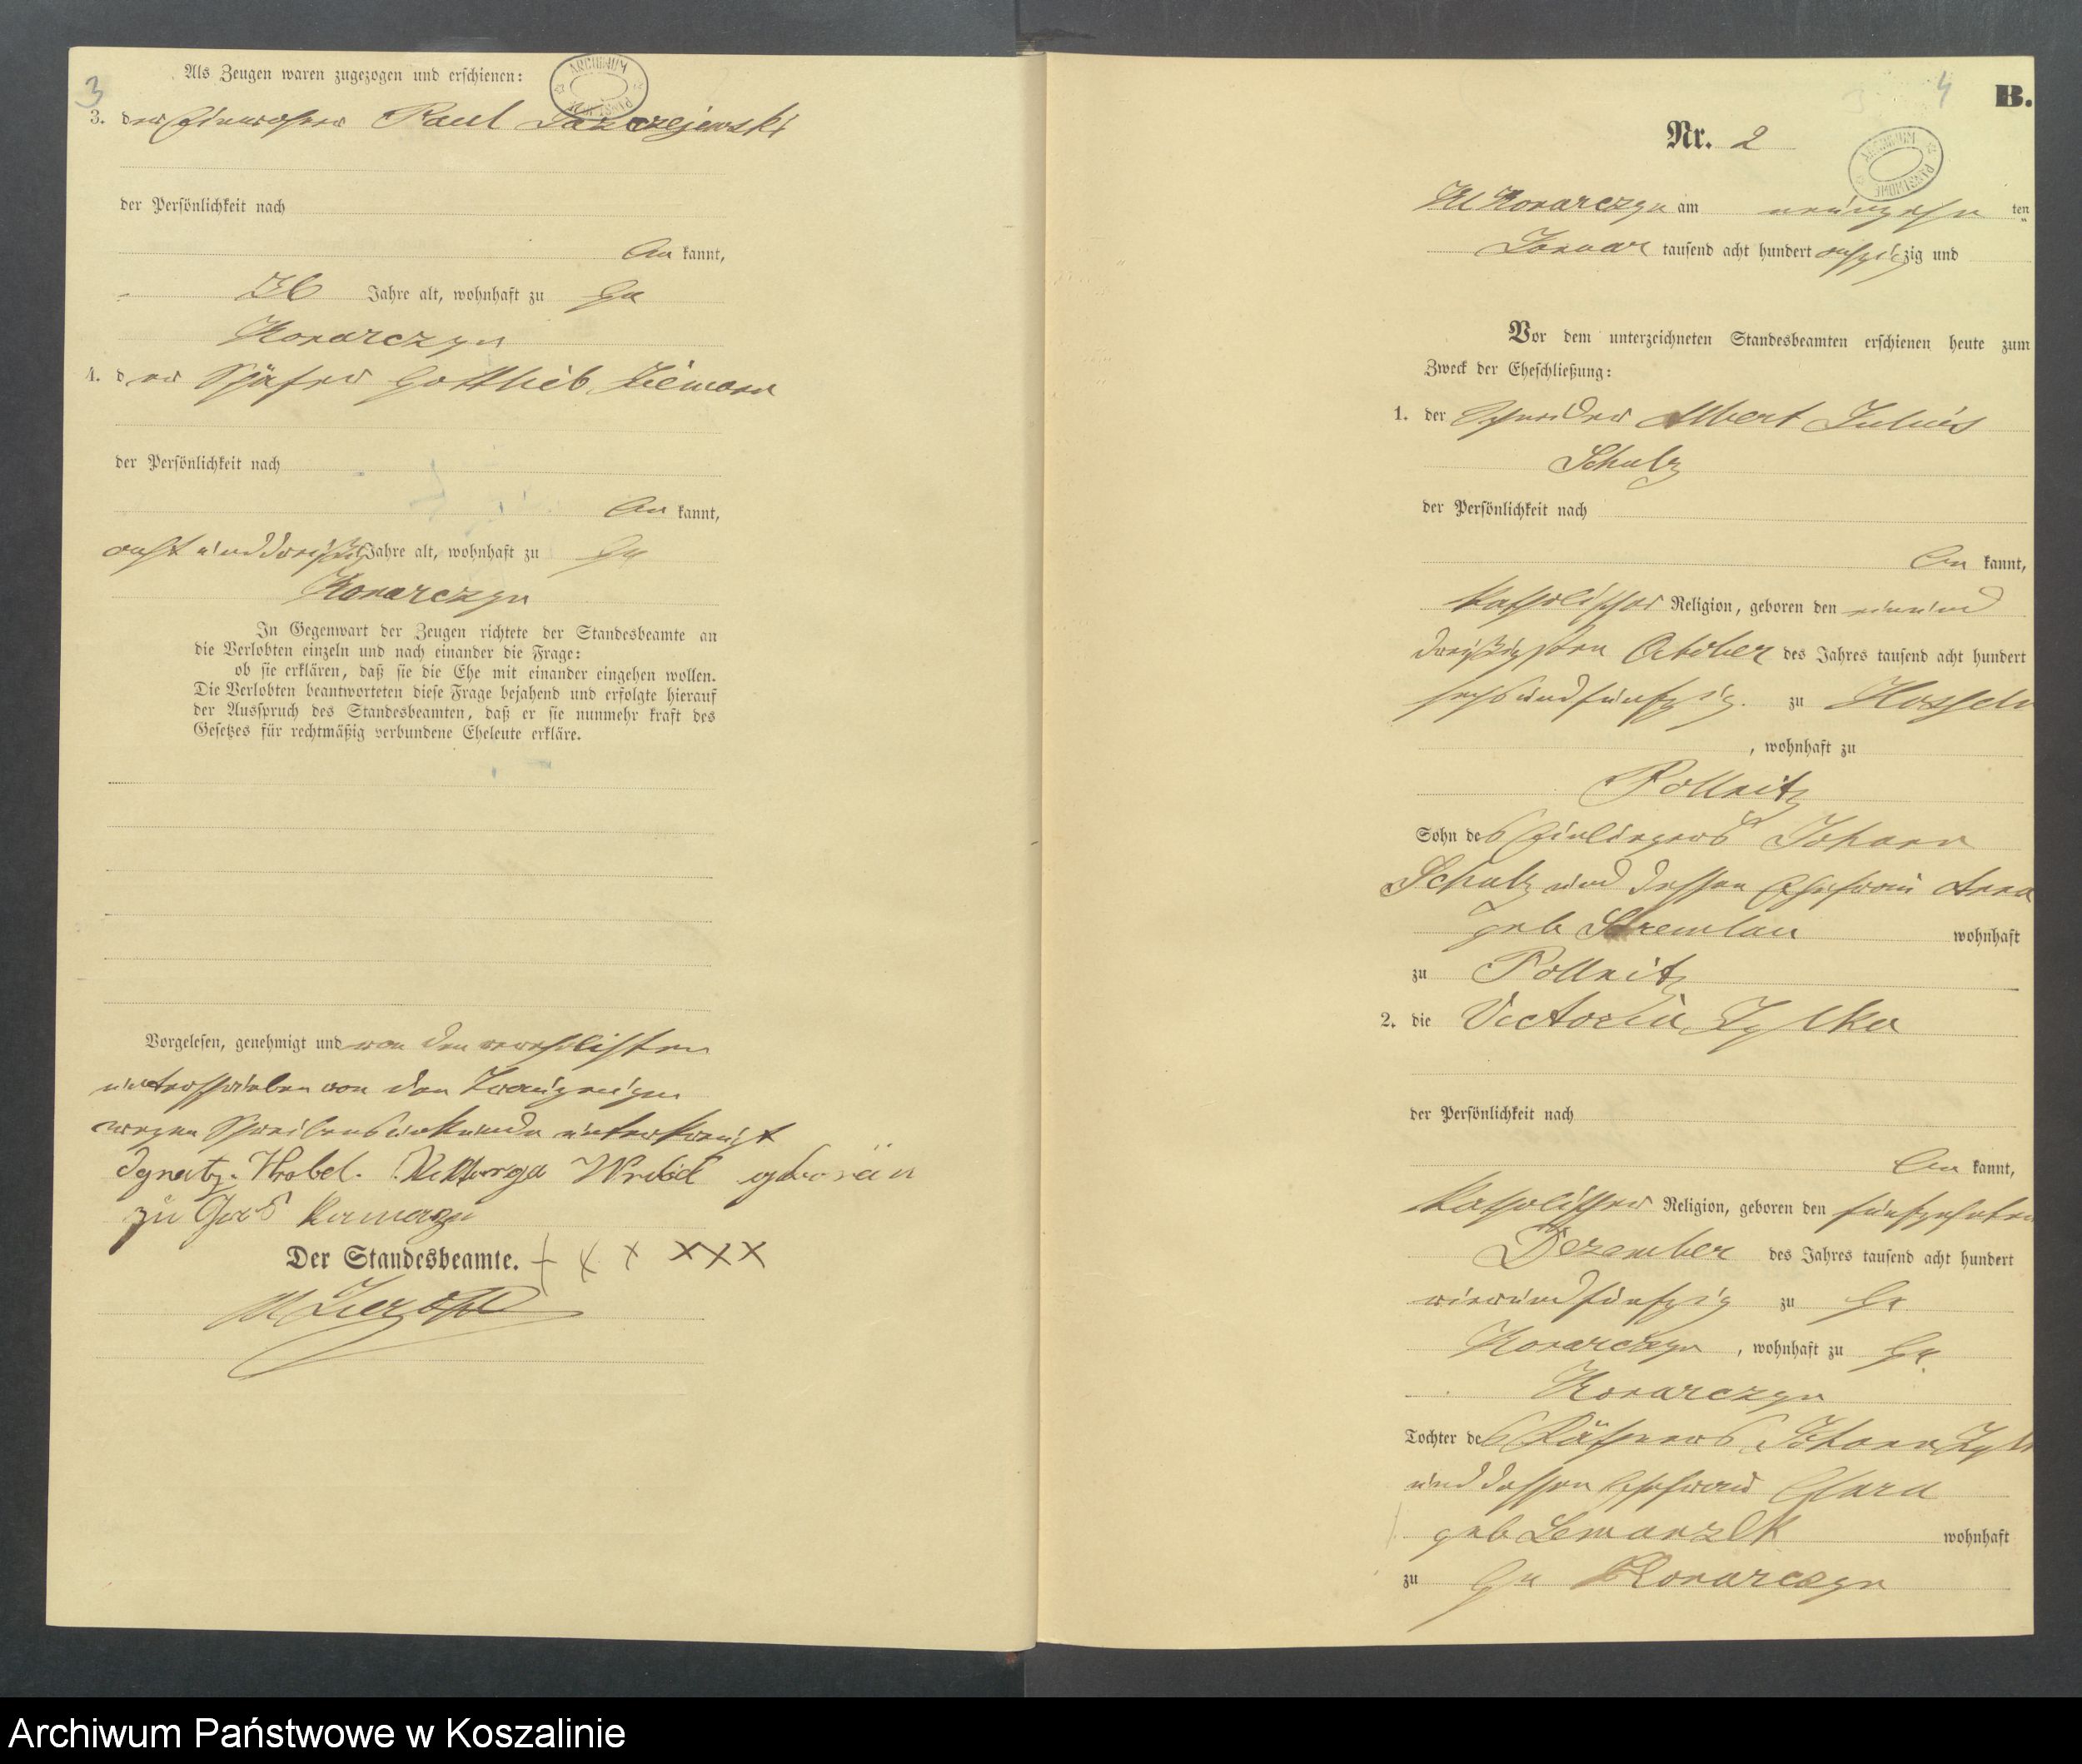 3
Als Zeugen waren zugezogen und erschienen:
ARCHIWUM PAŃSTWOWE
3. der Einwohner Paul
der Persönlichkeit nach
kannt,
36 Jahre alt, wohnhaft zu Gr
Konarczyn
4. der Schäfer Gottlieb Ziemann
der Persönlichkeit nach
kannt,
acht und dreißig Jahre alt, wohnhaft zu Gr
Konarczyn
In Gegenwart der Zeugen richtete der Standesbeamte an
die Verlobten einzeln und nach einander die Frage:
ob sie erklären, daß sie die Ehe mit einander eingehen wollen.
Die Verlobten beantworteten diese Frage bejahend und erfolgte hierauf
der Ausspruch des Standesbeamten, daß er sie nunmehr kraft des
Gesetzes für rechtmäßig verbundene Eheleute erkläre.
Vorgelesen, genehmigt und von den
unterschrieben von den
wegen Schreibensunkunde unterkreuzt
Ignatz Wrobel. Wrobel
zu
Der Standesbeamte. + x x xxx
4
B.
Nr. 2
ARCHIWUM PAŃSTWOWE
Kl Konarczyn am neunzehn ten
Januar tausend acht hundert achtzig und
Vor dem unterzeichneten Standesbeamten erschienen heute zum
Zweck der Eheschließung:
1. der Schneider Albert Julius
Schulz
der Persönlichkeit nach
kannt,
katholischer Religion, geboren den einund
dreißigsten October des Jahres tausend acht hundert
sechsundfünfzig. zu
, wohnhaft zu
Pollnitz
Sohn des Einliegers Johann
Schulz und dessen Ehefrau Anna
geb Stremlau wohnhaft
zu Pollnitz
2. die Victoria Zylka
der Persönlichkeit nach
kannt,
katholischer Religion, geboren den fünfzehnten
Dezember des Jahres tausend acht hundert
vierundfünfzig zu Gr
Konarczyn, wohnhaft zu Gr.
Konarczyn
Tochter des Käthners Johann
und dessen Ehefrau Clara
geb wohnhaft
zu Gr Konarczyn
Archiwum Państwowe w Koszalinie